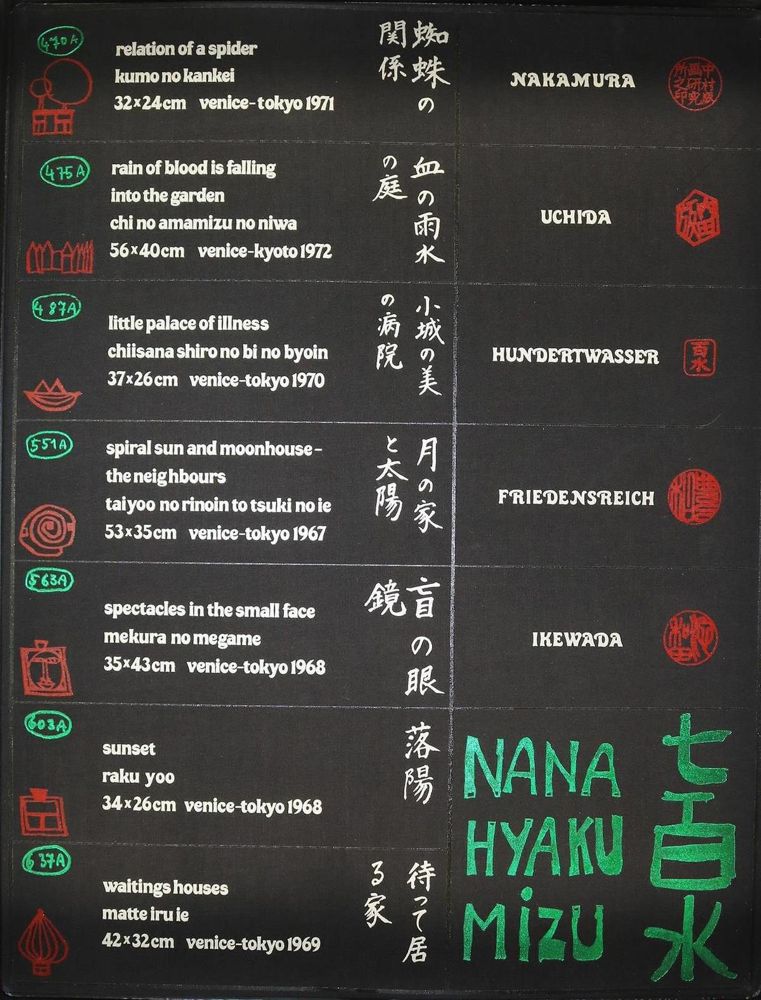 470A
relation of a spider
kumo no kankei
32x24cm venice-tokyo 1971
蜘蛛の
関係
NAKAMURA
475A
rain of blood is falling
into the garden
chi no amamizu no niwa
56x40cm venice-kyoto 1972
血の雨水
の庭
UCHIDA
487A
little palace of illness
chiisana shiro no bi no byoin
37x26cm venice-tokyo 1970
小城の美
の病院
HUNDERTWASSER
百水
551A
spiral sun and moonhouse-
the neighbours
taiyoo no rinoin to tsuki no ie
53x35cm venice-tokyo 1967
月の家
と太陽
FRIEDENSREICH
563A
spectacles in the small face
mekura no megame
35x43cm venice-tokyo 1968
盲の眼
鏡
IKEWADA
603A
sunset
raku yoo
34x26cm venice-tokyo 1968
落陽
637A
waitings houses
matte iru ie
42x32cm venice-tokyo 1969
待って居
る家
NANA
HYAKU
MiZU
七百水